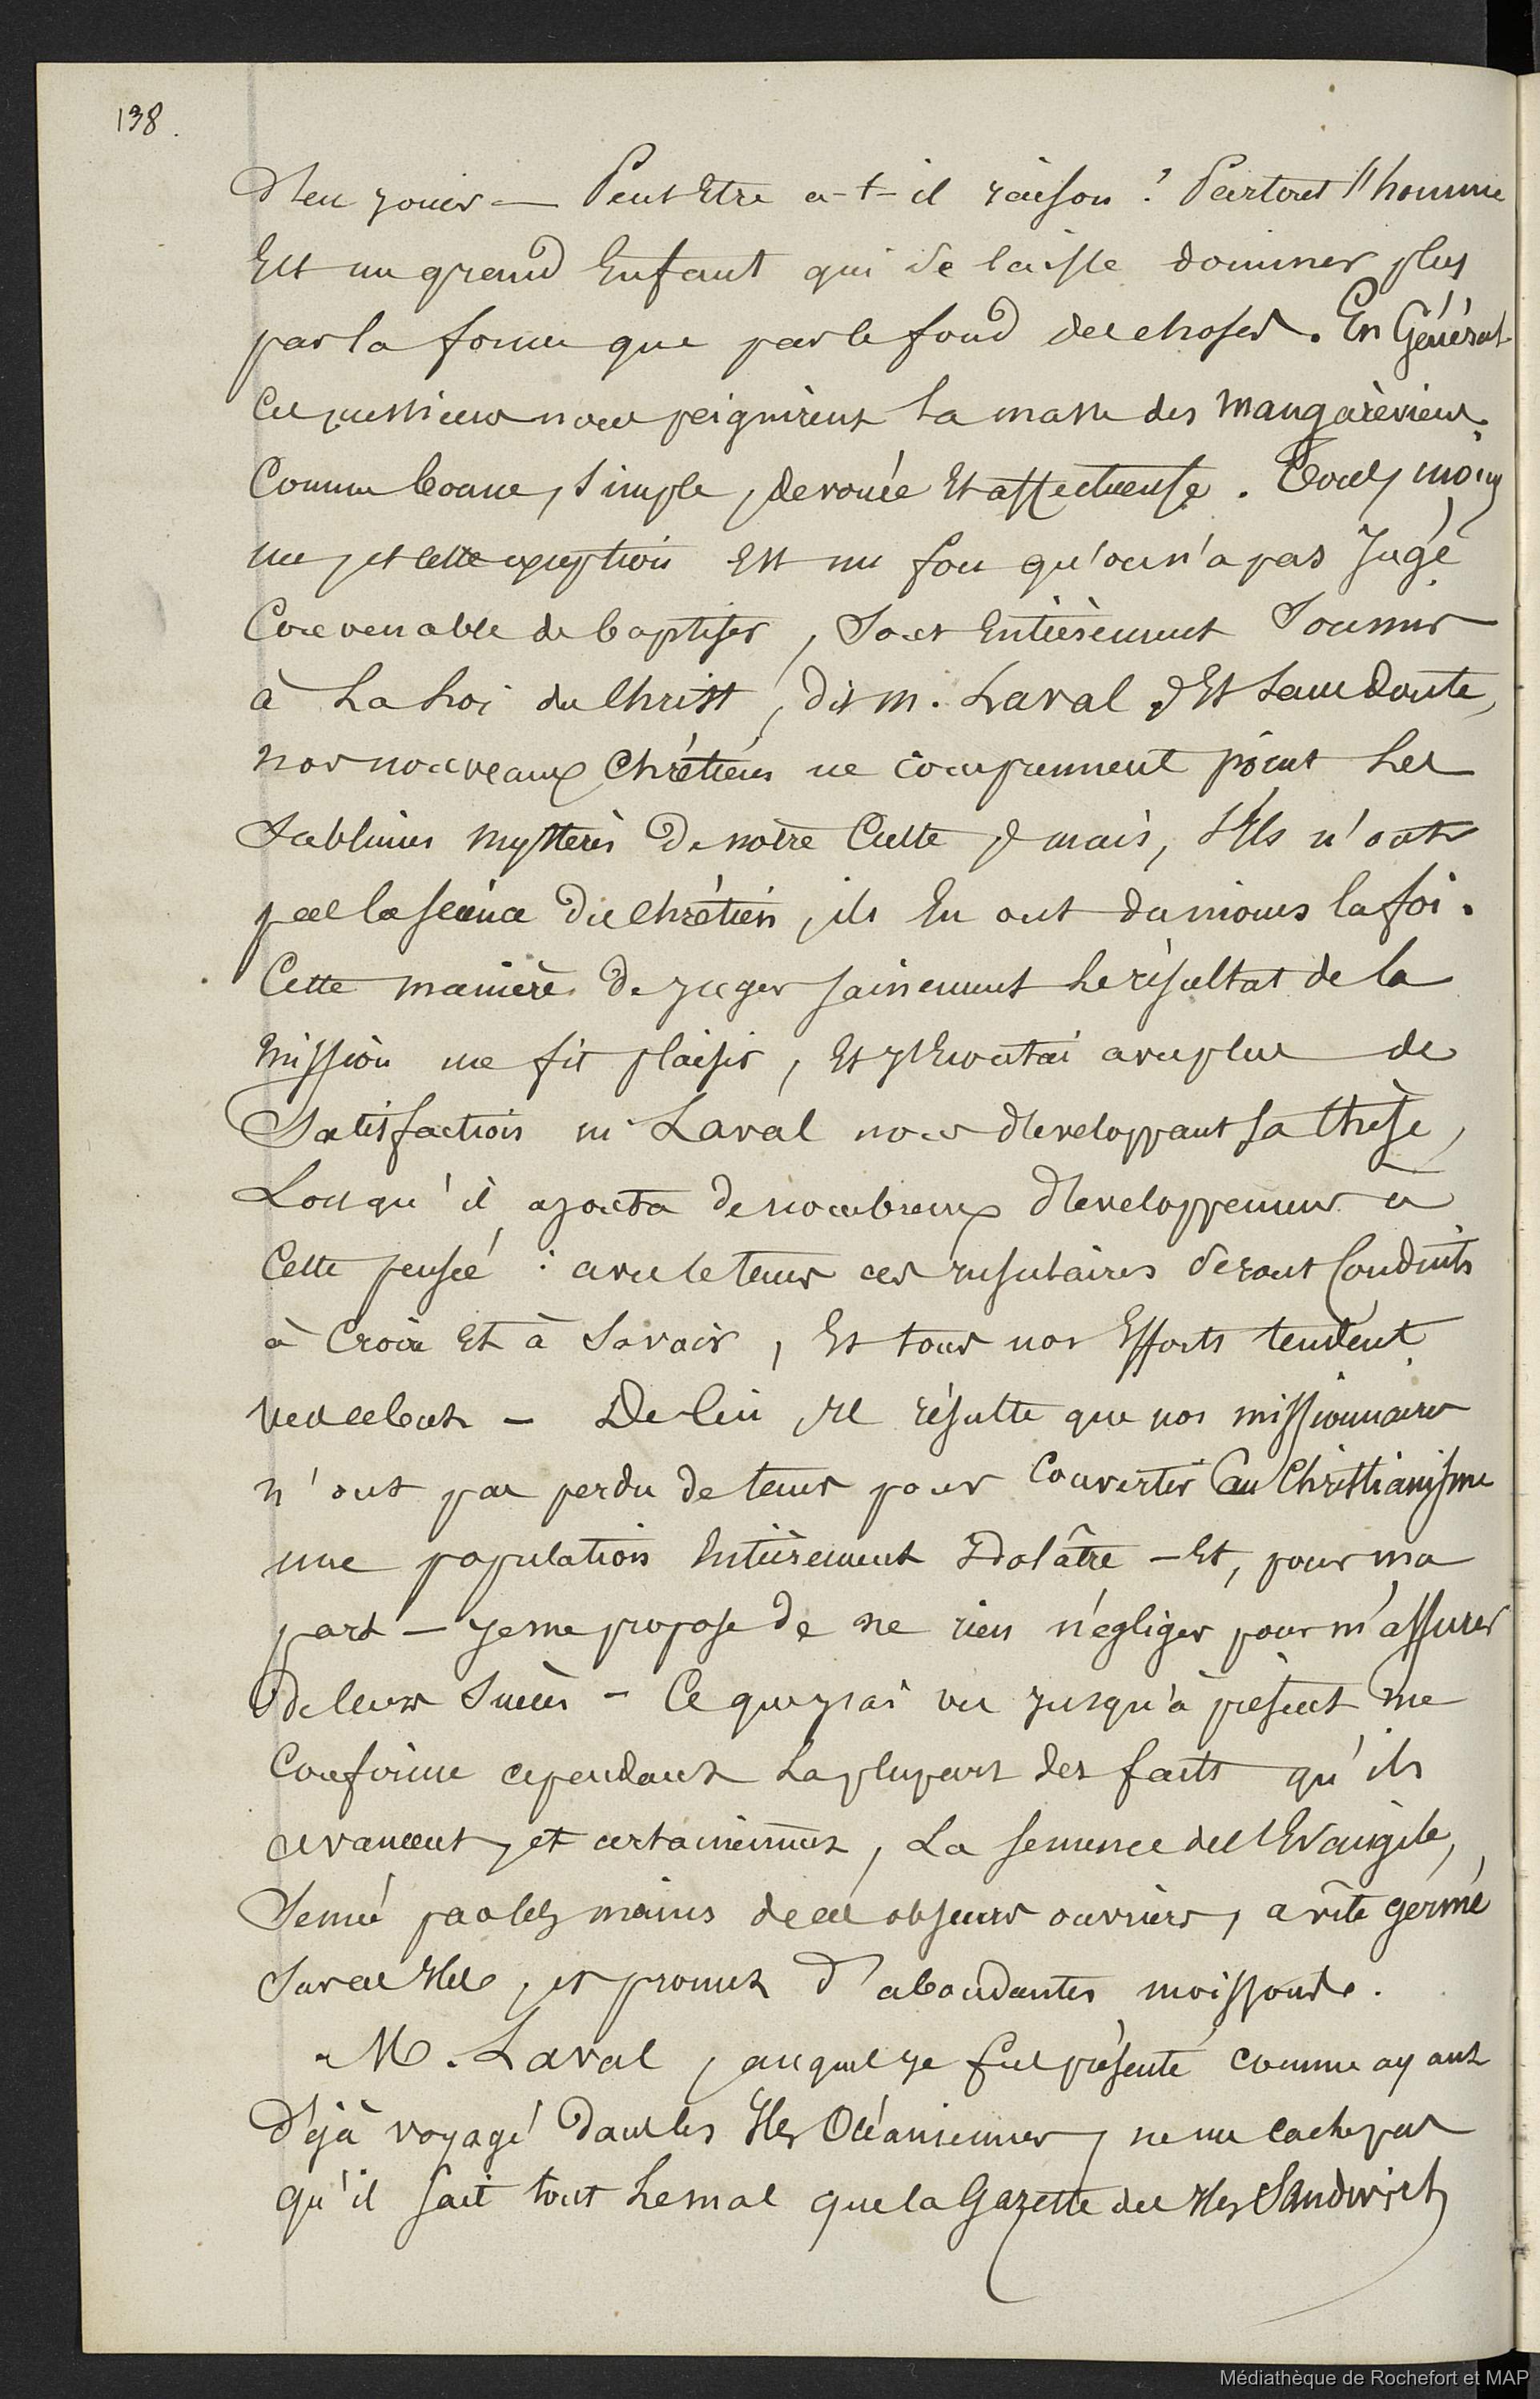 138.
d'en jouir — Peut Etre a-t-il raison ? Partout l'homme
Est un grand Enfant qui se laisse dominer plus
par la forme que par le fond des choses. En Général
ces messieurs nous peignirent la masse des Mangaréviens
Comme bonne, simple, devouée Et affectueuse. Tous, moins
un, et cette exception Est un fou qu'on n'a pas Jugé
Convenable de baptiser, Sont Entièrement Soumis
à La Loi du Christ, dit m. Laval, Et sans doute,
nos nouveaux Chrétiens ne comprennent point Les
Sublimes mystères de notre Culte, mais, s'Ils n'ont
pas la science du Chrétien, ils En ont du moins la foi.
Cette manière de juger sainement Le résultat de la
mission me fit plaisir, Et j'Ecoutai avec plus de
Satisfaction m. Laval nous developpant sa thèse,
Lorsqu'il ajouta de nombreux developpemens à
Cette pensée : avec le tems ces insulaires seront Conduits
à Croire Et à Savoir, Et tous nos Efforts tendent
vers ce but — De lui Il résulte que nos missionnaires
n'ont pas perdu de tems pour Convertir au Christianisme
une population Entièrement Idolâtre — Et, pour ma
part — je me propose de ne rien négliger pour m'assurer
de leurs Succès — Ce que j'ai vu jusqu'à présent me
Confirme cependant La plupart des faits qu'ils
avancent, et certainement, La semence de l'Evangile,
Semée par les mains de ces obscurs ouvriers, a vite germé
Sur ces Iles, et promet d'abondantes moissons.
M. Laval, auquel je fus présenté comme ayant
déjà voyagé dans les Iles Océaniennes, ne me cache pas
qu'il sait tout Le mal que la Gazette des Iles Sandwich
Médiathèque de Rochefort et MAP